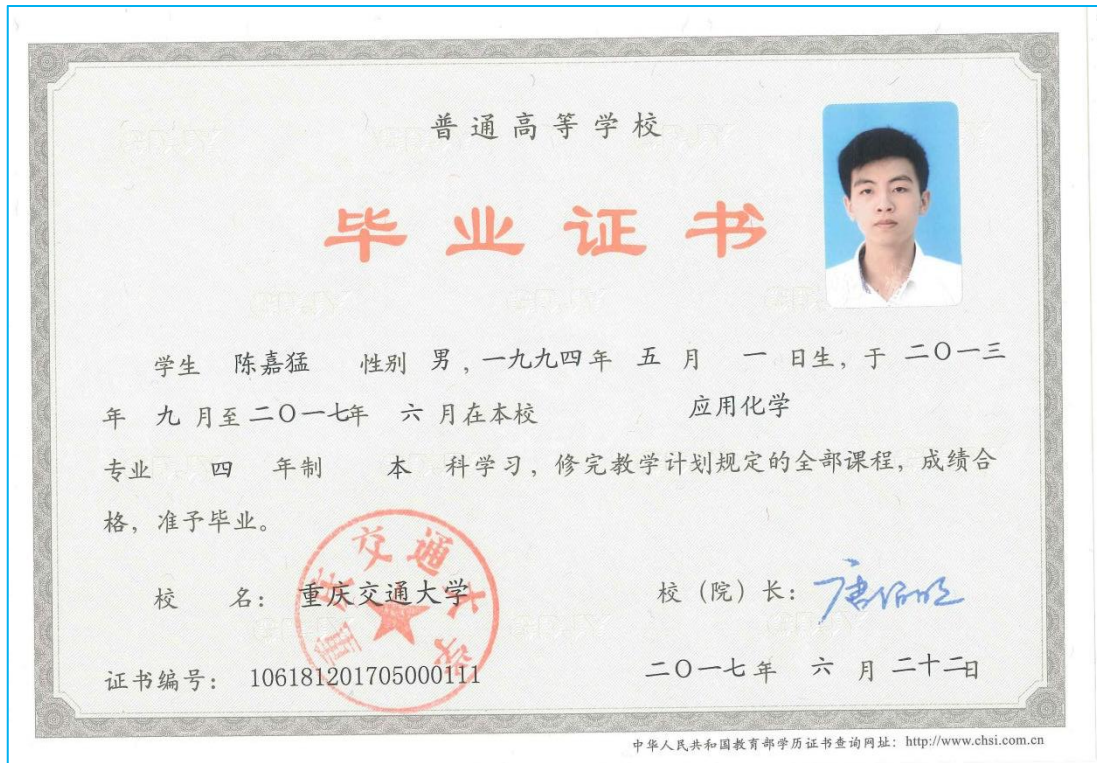 普通高等学校
毕业证书
学生 陈嘉猛 性别 男,一九九四年 五 月 一 日生,于 二〇一三
年 九 月至 二〇一七年 六 月在本校 应用化学
专业 四 年制 本 科学习,修完教学计划规定的全部课程,成绩合
格,准予毕业。
重庆交通大学
校 名: 重庆交通大学 校(院)长: 唐伯明
证书编号: 106181201705000111 二〇一七年 六 月 二十二日
中华人民共和国教育部学历证书查询网址: http://www.chsi.com.cn